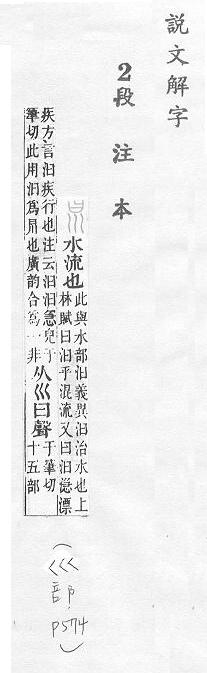 說文解字
2段注本
水流也
此與水部汩義異汩治水也上
林賦曰汩乎混流又曰汩㴔漂
疾方言汩疾行也注云汩汩急皃于
筆切此用汩爲𡿯也廣韵合爲一非
从巛曰聲
于筆切
十五部
(巛部 P574)